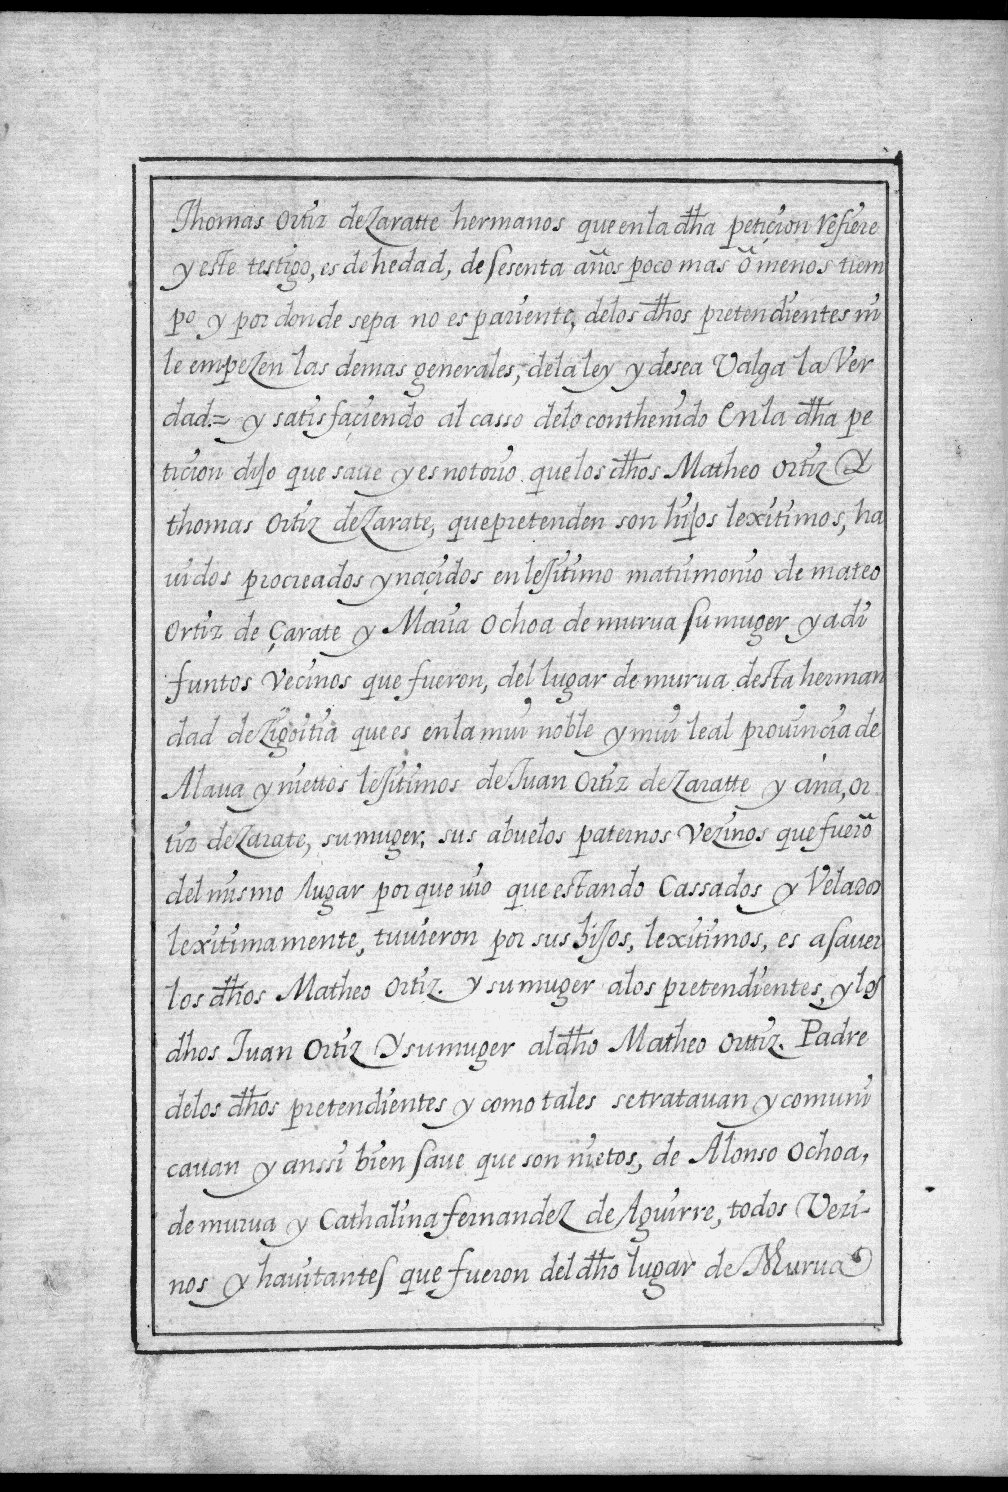 Thomas Ortiz de Zaratte hermanos que en la dha petiçion Refiere
y este testigo, es de hedad, de sesenta años poco mas ō menos tiem
po y por donde sepa no es pariente, de los dhos pretendientes ni
le empezen las demas generales, de la ley y desea Valga la Ver
dad.= y satisfaçiendo al casso de lo conthenido En la dha pe
ticion dijo que saue y es notorio que los dhos Matheo Ortiz Y
thomas Ortiz de Zarate, que pretenden son hijos lexitimos, ha
uidos procreados y naçidos en lejitimo matrimonio de mateo
Ortiz de Çarate y Maria Ochoa de murua su muger ya di
funtos Vecinos que fueron, del lugar de murua desta herman
dad de Zigoitia que es en la mui noble y mui leal prouincia de
Alaua y niettos lejitimos de Juan Ortiz de Zaratte y ana, or
tiz de Zarate, su muger, sus abuelos paternos Vezinos que fuerō
del mismo lugar por que uio que estando Cassados y Velados
lexitimamente, tuuieron por sus hijos, lexitimos, es a sauer
los dhos Matheo Ortiz. y su muger a los pretendientes, y los
dhos Juan Ortiz Y su muger al dho Matheo Orttiz. Padre
de los dhos pretendientes y como tales se tratauan y comuni
cauan y anssi bien saue que son nietos, de Alonso Ochoa,
de murua y Cathalina fernandez de Aguirre, todos Vezi-
nos y hauitantes que fueron del dho lugar de Murua